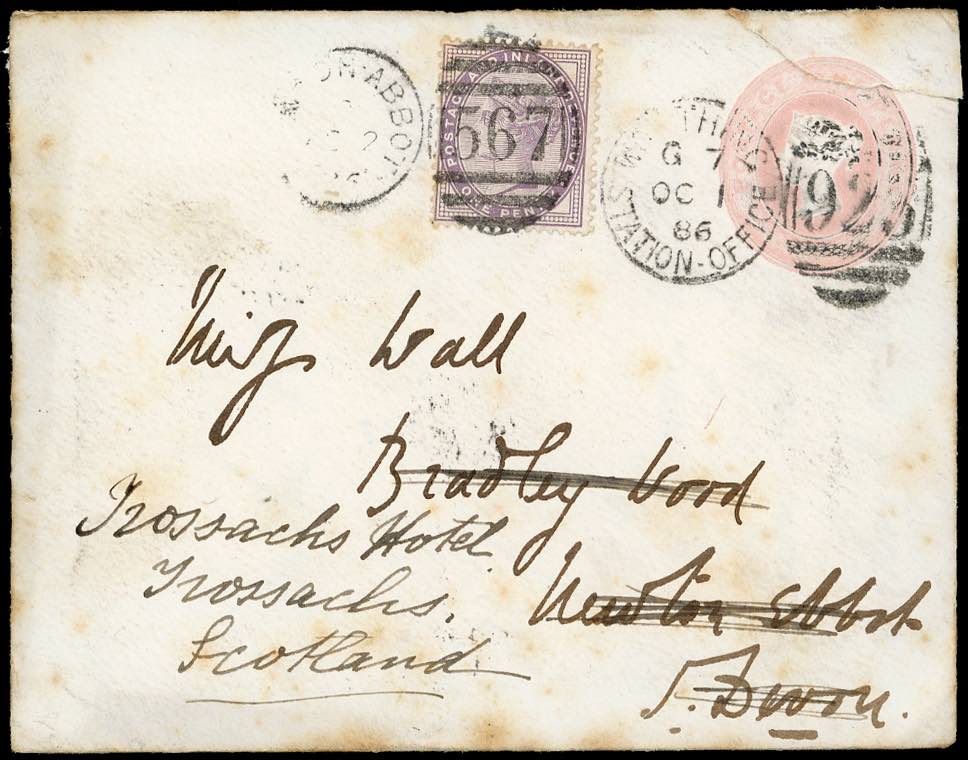 TON-ABBOT
OC 2
86
POSTAGE AND INLAND REVENUE
567
ONE PENNY
STATION-OFFICE
G 7
OC 1
86
923
Miss Wall
Bradley Wood
Newton Abbot
S. Devon.
Trossachs Hotel.
Trossachs.
Scotland